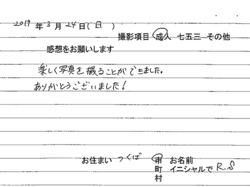 2019 年 3 月 24 日 ( 日 )
撮影項目 成人 七五三 その他
感想をお願いします
楽しく写真を撮ることができました。
ありがとうございました!
お住まい つくば 市 お名前
町 イニシャルで R.S
村